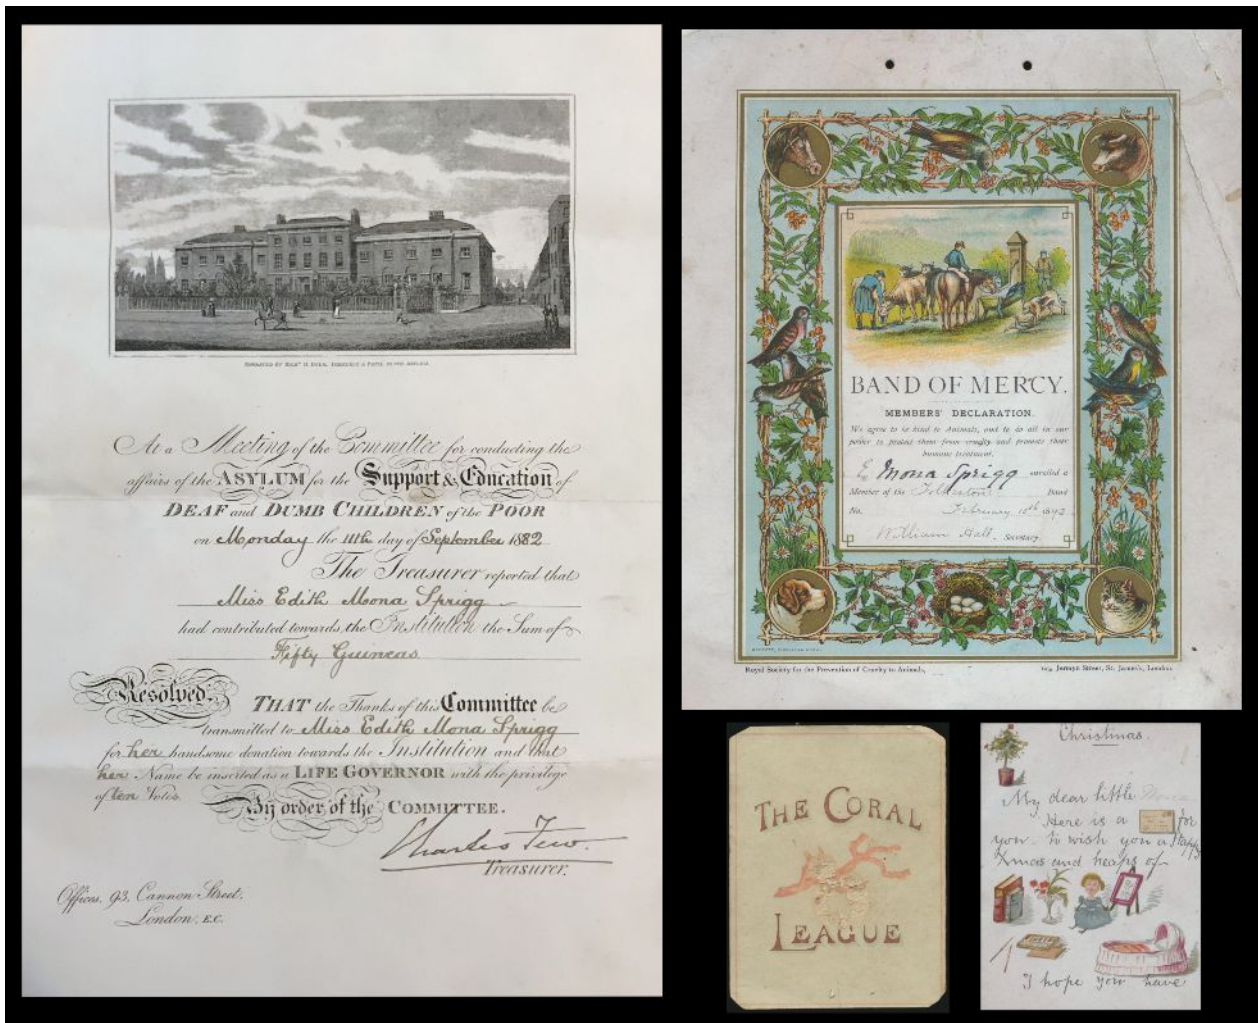 ENGRAVED BY
At a Meeting of the Committee for conducting the
affairs of the ASYLUM for the Support & Education of
DEAF and DUMB CHILDREN of the POOR
on Monday the 11th day of September 1882
The Treasurer reported that
Miss Edith Mona Sprigg
had contributed towards the Institution the Sum of
Fifty Guineas
Resolved. THAT the Thanks of this Committee be
transmitted to Miss Edith Mona Sprigg
for her handsome donation towards the Institution and that
her Name be inserted as a LIFE GOVERNOR with the privilege
of ten Votes.
By order of the COMMITTEE.
Charles Few.
Treasurer.
Offices, 93, Cannon Street,
London, E.C.
BAND OF MERCY.
MEMBERS' DECLARATION.
We agree to be kind to Animals, and to do all in our
power to protect them from cruelty and promote their
humane treatment.
E Mona Sprigg enrolled a
Member of the Band
No. February 1892
William Hall. Secretary.
Royal Society for the Prevention of Cruelty to Animals, 105, Jermyn Street, St. James's, London.
THE CORAL
LEAGUE
Christmas.
My dear little
Here is a for
you to wish you a Happy
Xmas and heaps of
I hope you have